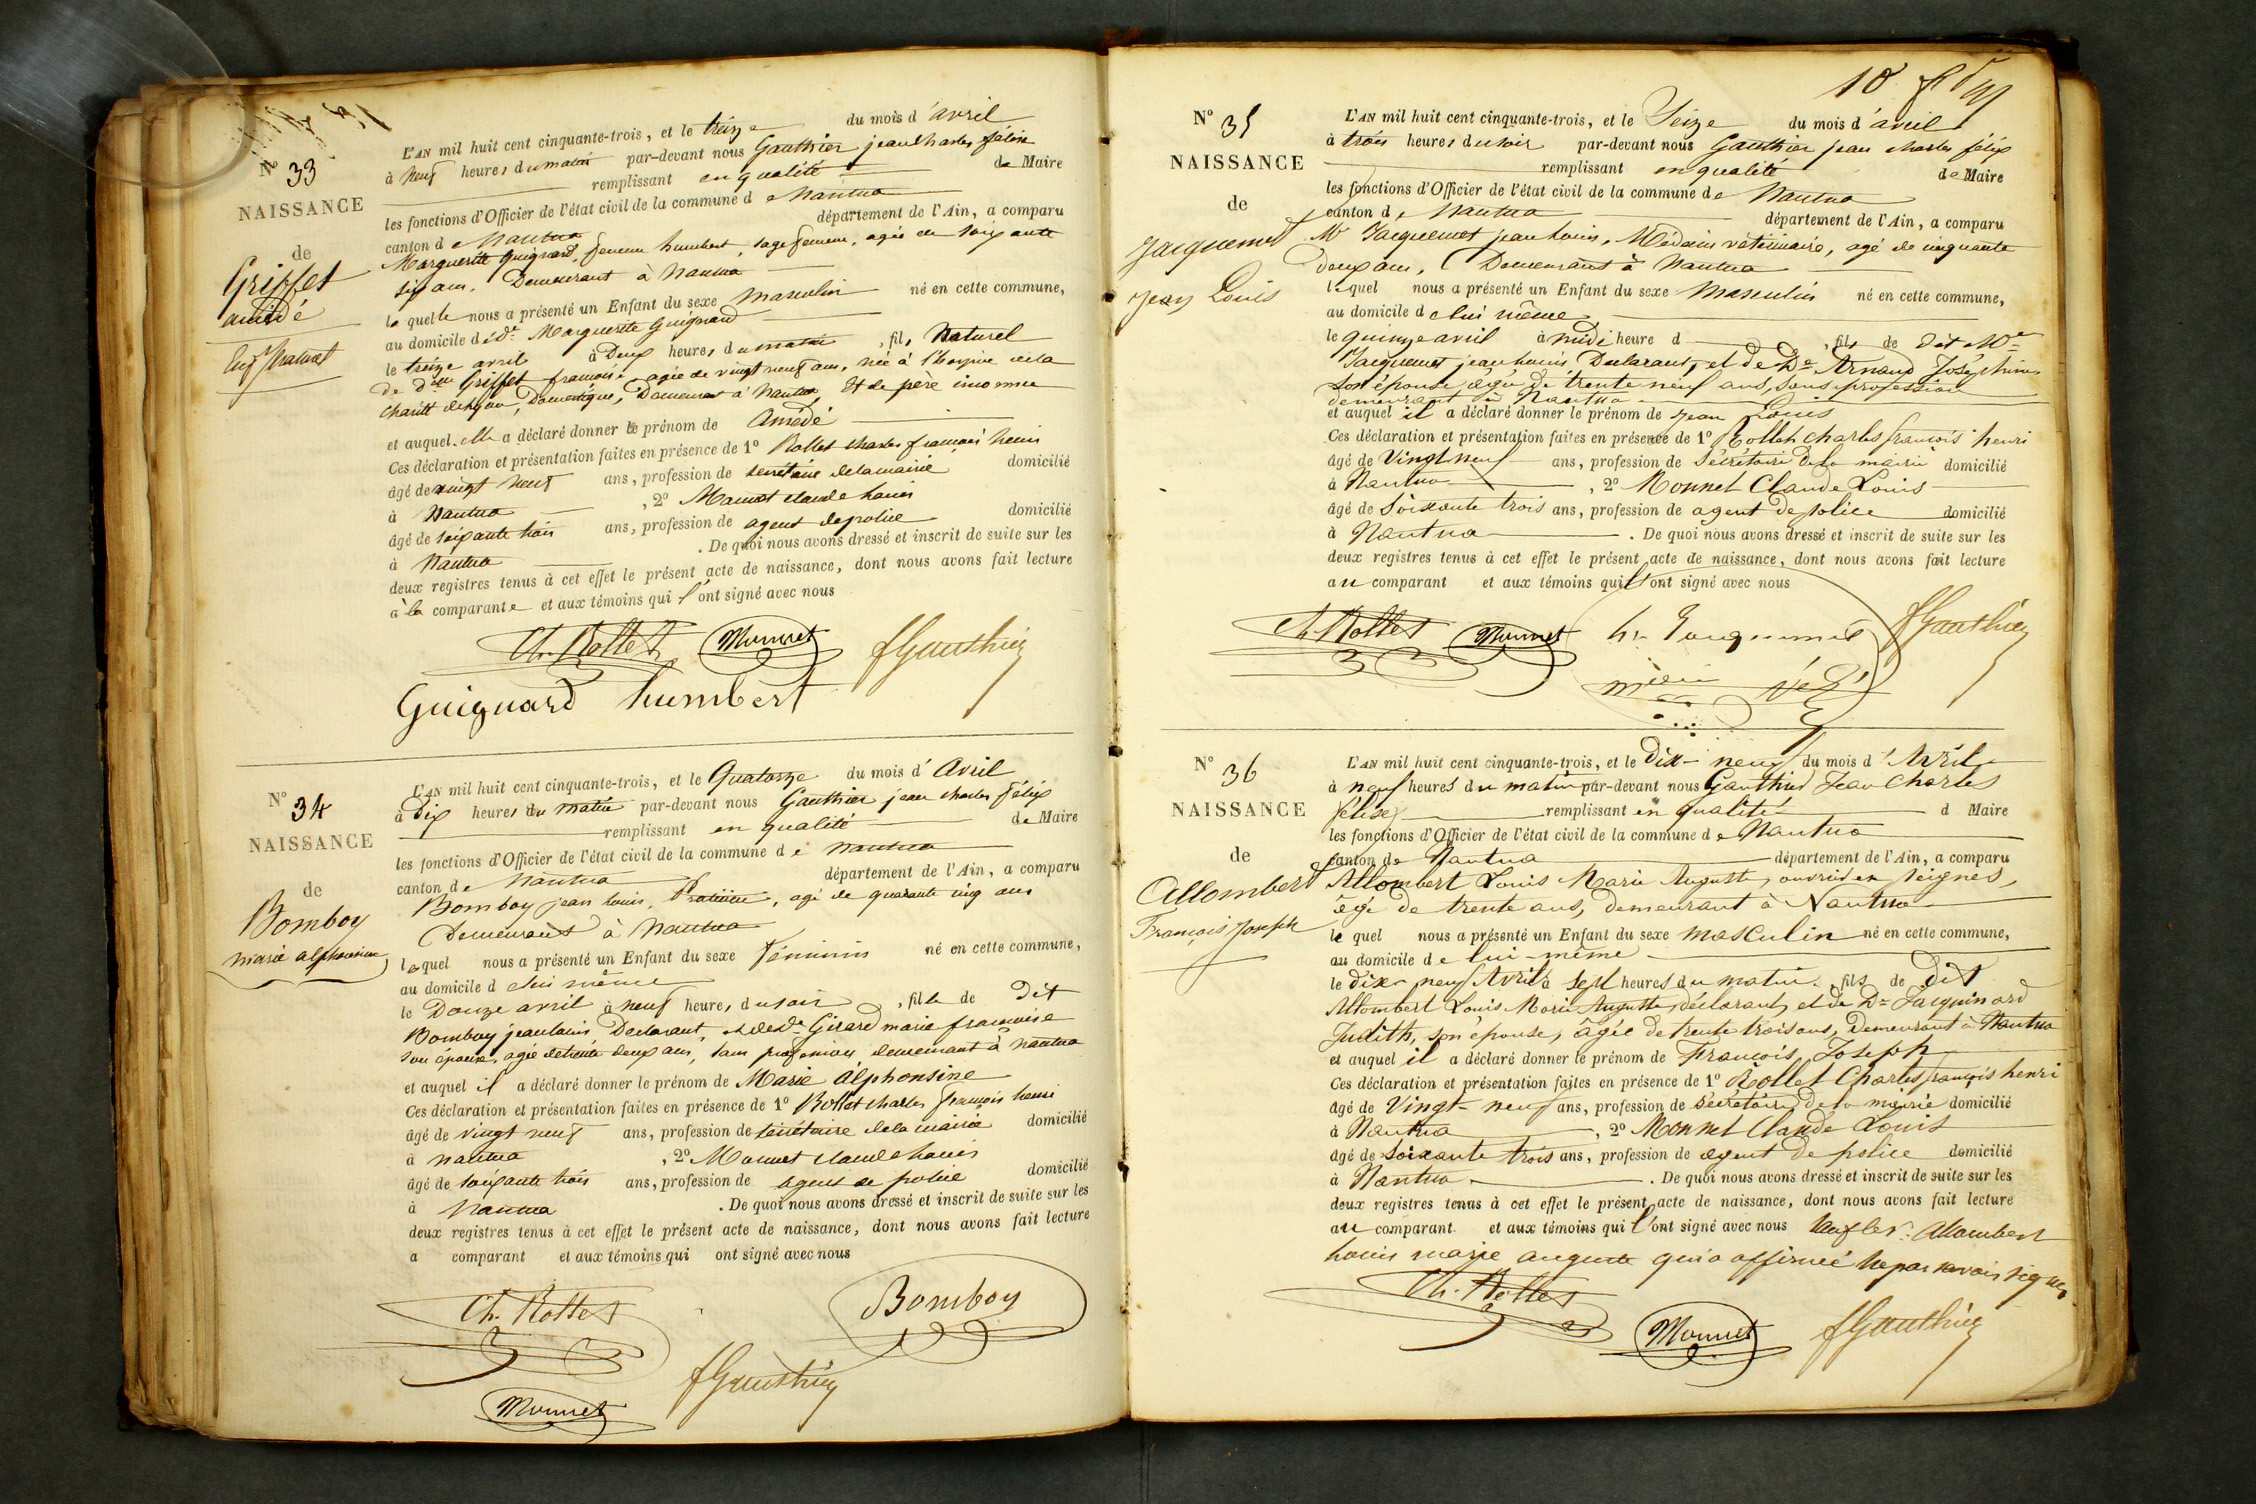 N° 33
NAISSANCE
de
Griffet
amédé
Enf. Naturel
L'AN mil huit cent cinquante-trois, et le treize du mois d'avril
à neuf heures du matin par-devant nous Gauthier jean Charles félix
remplissant en qualité de Maire
les fonctions d'Officier de l'état civil de la commune de Nantua
canton de Nantua département de l'Ain, a comparu
Marguerite Guignard, femme humbert, sage femme, agée de soixante
six ans, Demeurant à Nantua
laquelle nous a présenté un Enfant du sexe masculin né en cette commune,
au domicile de dte Marguerite Guignard
le treize avril à Deux heures du matin, fils Naturel
de Griffet francoise agée de vingt neuf ans, née à l'hospice de la
charité de Lyon, Domestique, Demeurant à Nantua, et de père inconnu
et auquel elle a déclaré donner le prénom de Amédé
Ces déclaration et présentation faites en présence de 1° Rollet charles françois henri
âgé de vingt neuf ans, profession de secrétaire de la mairie domicilié
à Nantua, 2° Monnet claude Louis
âgé de soixante trois ans, profession de agent de police domicilié
à Nantua. De quoi nous avons dressé et inscrit de suite sur les
deux registres tenus à cet effet le présent acte de naissance, dont nous avons fait lecture
à la comparante et aux témoins qui l'ont signé avec nous
Ch. Rollet Monnet fGauthier
Guignard humbert
N° 34
NAISSANCE
de
Bomboy
marie alphonsine
L'AN mil huit cent cinquante-trois, et le Quatorze du mois d'Avril
à Dix heures du matin par-devant nous Gauthier jean charles félix
remplissant en qualité de Maire
les fonctions d'Officier de l'état civil de la commune de Nantua
canton de Nantua département de l'Ain, a comparu
Bomboy jean louis, agé de quarante cinq ans
Demeurant à Nantua
lequel nous a présenté un Enfant du sexe féminin né en cette commune,
au domicile de lui même
le Douze avril à neuf heures du soir, fille de Dit
Bomboy jean louis Declarant, et de De Girard marie francoise
son épouse, agée de trente deux ans, sans profession demeurant à Nantua
et auquel il a déclaré donner le prénom de Marie Alphonsine
Ces déclaration et présentation faites en présence de 1° Rollet charles françois henri
âgé de vingt neuf ans, profession de secrétaire de la mairie domicilié
à nantua, 2° Monnet claude Louis
âgé de soixante trois ans, profession de agent de police domicilié
à Nantua. De quoi nous avons dressé et inscrit de suite sur les
deux registres tenus à cet effet le présent acte de naissance, dont nous avons fait lecture
a comparant et aux témoins qui ont signé avec nous
Ch. Rollet Bomboy
fGauthier
Monnet
18
N° 35
NAISSANCE
de
Jacquemet
Jean Louis
L'AN mil huit cent cinquante-trois, et le Seize du mois d'avril
à trois heures du soir par-devant nous Gauthier jean charles félix
remplissant en qualité de Maire
les fonctions d'Officier de l'état civil de la commune de Nantua
canton de Nantua département de l'Ain, a comparu
Mr Jacquemet jean Louis, Médecin vétérinaire, agé de cinquante
Deux ans, Demeurant à Nantua
lequel nous a présenté un Enfant du sexe Masculin né en cette commune,
au domicile de lui même
le quinze avril à midi heure d, fils de Dit Mr
Jacquemet jean Louis Declarant, et de De Arnaud Joséphine
son épouse agée de trente neuf ans, sans profession
demeurant à Nantua
et auquel il a déclaré donner le prénom de Jean Louis
Ces déclaration et présentation faites en présence de 1° Rollet Charles françois henri
âgé de Vingt neuf ans, profession de Sécrétaire de la mairie domicilié
à Nantua, 2° Monnet Claude Louis
âgé de Soixante trois ans, profession de agent de police domicilié
à Nantua. De quoi nous avons dressé et inscrit de suite sur les
deux registres tenus à cet effet le présent acte de naissance, dont nous avons fait lecture
au comparant et aux témoins qui l'ont signé avec nous
Ch. Rollet Monnet Jacquemet fGauthier
N° 36
NAISSANCE
de
Allombert
François Joseph
L'AN mil huit cent cinquante-trois, et le Dix-neuf du mois d'Avril
à neuf heures du matin par-devant nous Gauthier Jean Charles
félix remplissant en qualité d Maire
les fonctions d'Officier de l'état civil de la commune de Nantua
canton de Nantua département de l'Ain, a comparu
Allombert Louis Marie Auguste, ouvrier en Peignes,
âgé de trente ans, demeurant à Nantua
lequel nous a présenté un Enfant du sexe masculin né en cette commune,
au domicile de lui-même
le Dix-neuf Avril à sept heures du matin, fils de Dit
Allombert Louis Marie Auguste, déclarant, et de De Jacquinard
Judith, son épouse, âgée de trente trois ans, Demeurant à Nantua
et auquel il a déclaré donner le prénom de François Joseph
Ces déclaration et présentation faites en présence de 1° Rollet Charles françois henri
âgé de Vingt-neuf ans, profession de Sécrétaire de la mairie domicilié
à Nantua, 2° Monnet Claude Louis
âgé de Soixante trois ans, profession de agent de police domicilié
à Nantua. De quoi nous avons dressé et inscrit de suite sur les
deux registres tenus à cet effet le présent acte de naissance, dont nous avons fait lecture
au comparant et aux témoins qui l'ont signé avec nous sauf ler. Allombert
Louis marie auguste qui a affirmé ne pas savoir signer
Ch. Rollet
Monnet fGauthier